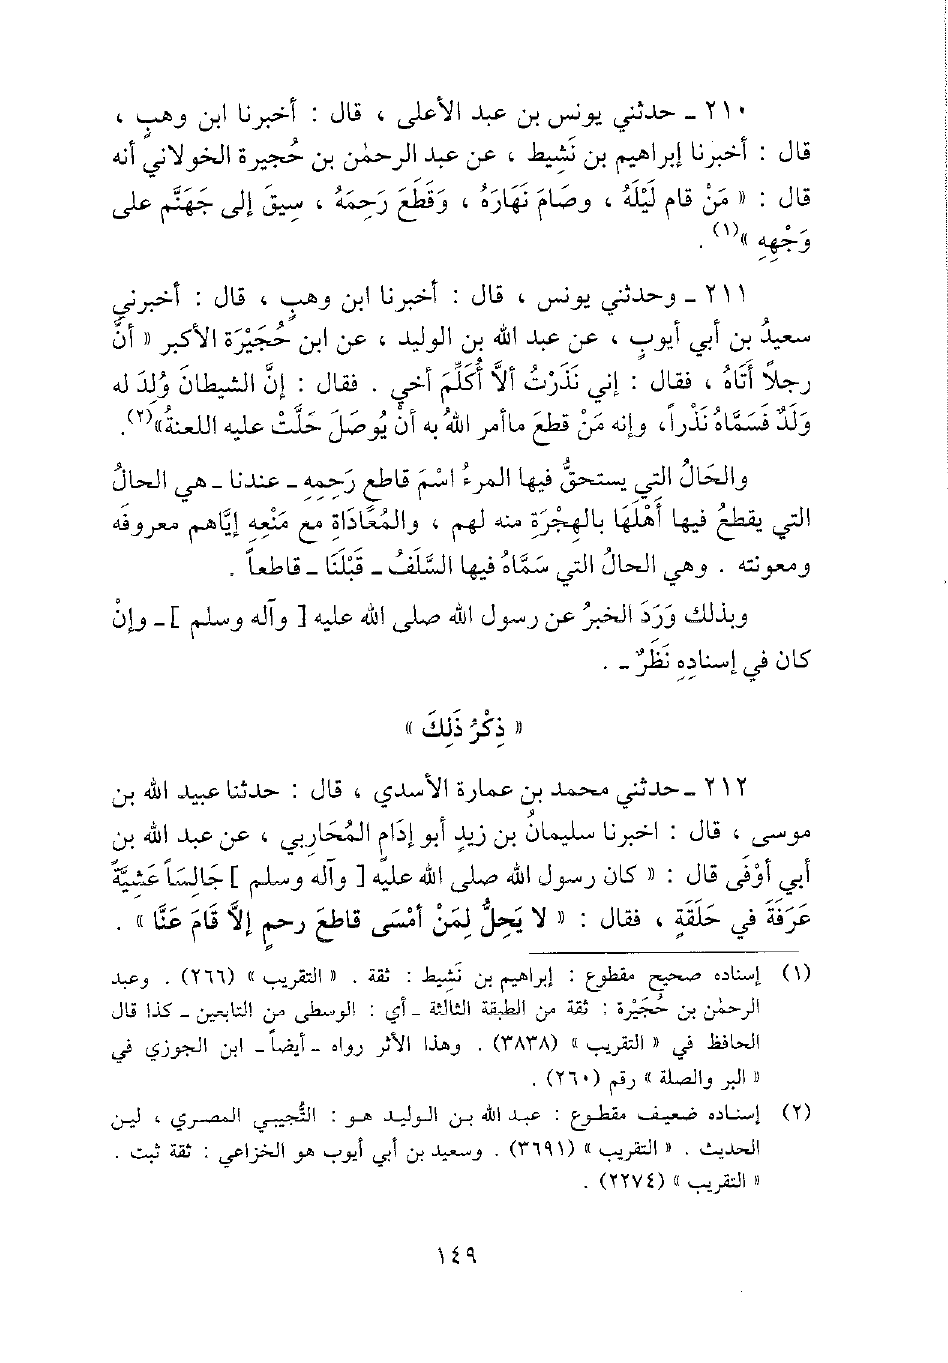 ٢١٠ ـ حدثني يونس بن عبد الأعلى ، قال : أخبرنا ابن وهبٍ ،
قال : أخبرنا إبراهيم بن نَشِيط ، عن عبد الرحمٰن بن حُجيرة الخولاني أنه
قال : « مَنْ قام لَيْلَهُ ، وصَامَ نَهَارَهُ ، وَقَطَعَ رَحِمَهُ ، سِيقَ إلى جَهَنَّم على
وَجْهِهِ »(١) .
٢١١ ـ وحدثني يونس ، قال : أخبرنا ابن وهبٍ ، قال : أخبرني
سعيدُ بن أبي أيوبٍ ، عن عبد الله بن الوليد ، عن ابن حُجَيْرَة الأكبر « أنَّ
رجلاً أتَاهُ ، فقال : إني نَذَرْتُ ألاَّ أُكَلِّمَ أخي . فقال : إنَّ الشيطانَ وُلِدَ له
وَلَدٌ فَسَمَّاهُ نَذْراً، وإنه مَنْ قطعَ ماأمر اللهُ به أنْ يُوصَلَ حَلَّتْ عليه اللعنةُ»(٢).
والحَالُ التي يستحقُّ فيها المرءُ اسْمَ قاطعِ رَحِمِهِ ـ عندنا ـ هي الحالُ
التي يقطعُ فيها أهْلَهَا بالهِجْرَةِ منه لهم ، والمُعَّادَاةِ مع مَنْعِهِ إيَّاهم معروفَه
ومعونته . وهي الحالُ التي سَمَّاهُ فيها السَّلَفُ ـ قَبْلَنَا ـ قاطعاً .
وبذلك وَرَدَ الخبرُ عن رسول الله صلى الله عليه [ وآله وسلم ] ـ وإنْ
كان في إسنادِهِ نَظَرٌ ـ .
« ذِكْرُ ذَلِكَ »
٢١٢ ـ حدثني محمد بن عمارة الأسدي ، قال : حدثنا عبيد الله بن
موسى ، قال : اخبرنا سليمانُ بن زيدٍ أبو إدَام المُحَاربي ، عن عبد الله بن
أبي أوْفَى قال : « كان رسول الله صلى الله عليه [ وآله وسلم ] جَالِسَاً عَشِيَّةً
عَرَفَةَ في حَلَقَةٍ ، فقال : « لا يَحِلُّ لِمَنْ أمْسَى قاطعَ رحمٍ إلاَّ قَامَ عَنَّا » .
(١) إسناده صحيح مقطوع : إبراهيم بن نَشِيط : ثقة . « التقريب » (٢٦٦) . وعبد
الرحمٰن بن حُجَيْرة : ثقة من الطبقة الثالثة ـ أي : الوسطى من التابعين ـ كذا قال
الحافظ في « التقريب » (٣٨٣٨) . وهذا الأثر رواه ـ أيضاً ـ ابن الجوزي في
« البر والصلة » رقم (٢٦٠) .
(٢) إسناده ضعيف مقطوع : عبد الله بن الوليد هو : التُّجيبي المصري ، لين
الحديث . « التقريب » (٣٦٩١) . وسعيد بن أبي أيوب هو الخزاعي : ثقة ثبت .
« التقريب » (٢٢٧٤) .
١٤٩